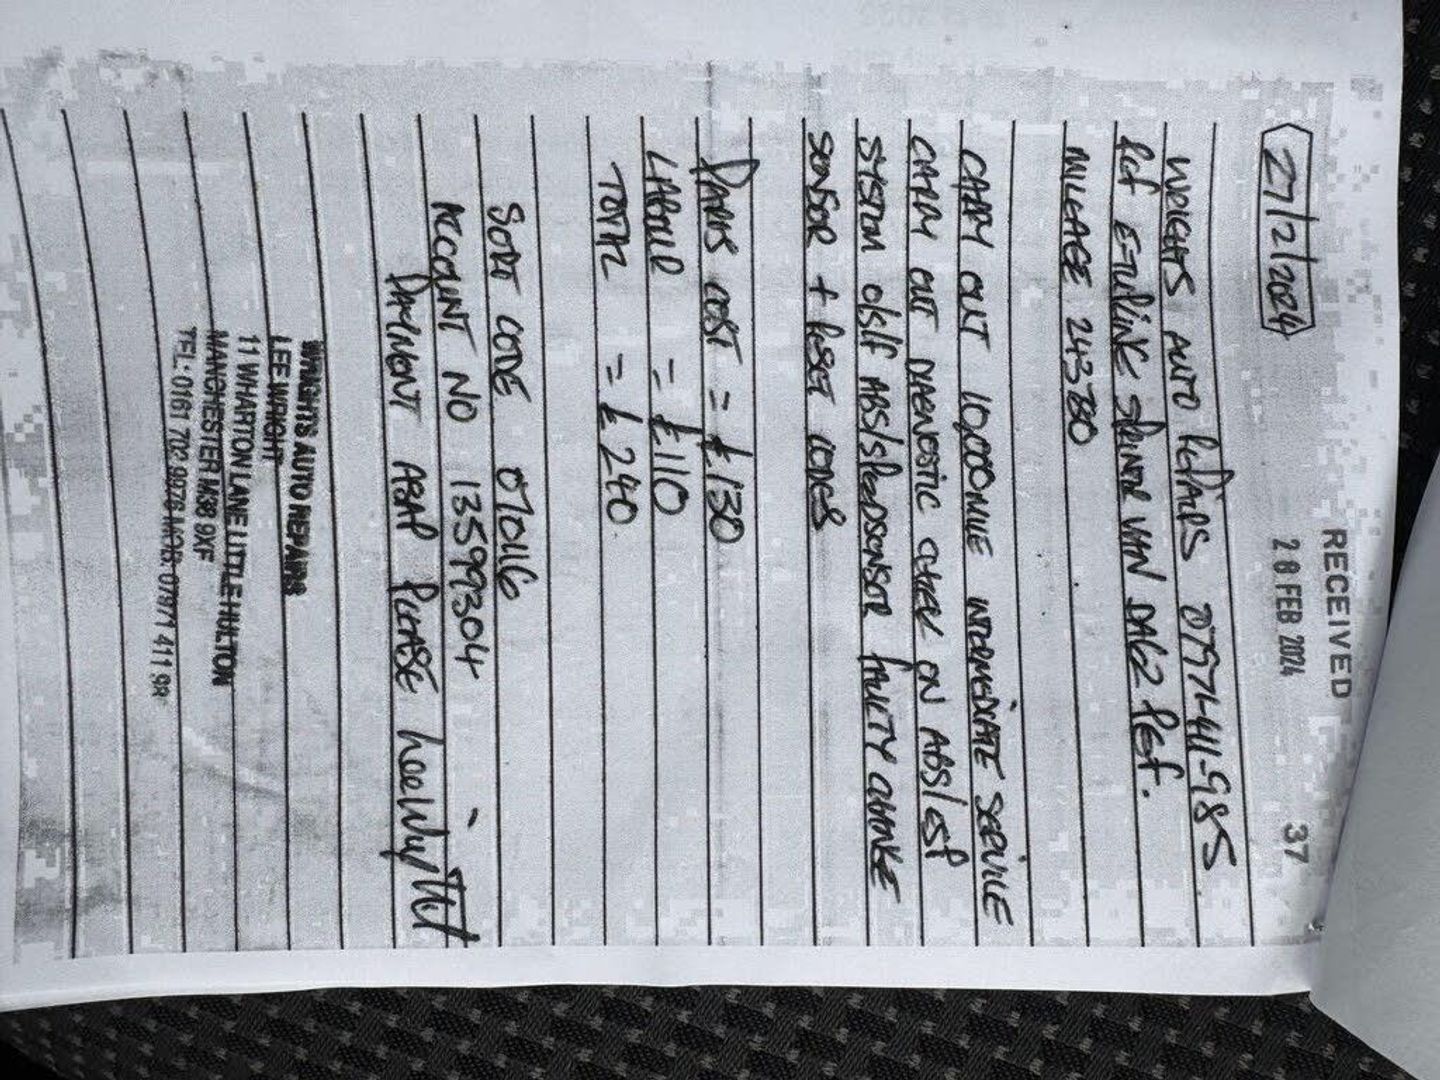 RECEIVED
28 FEB 2024
37
27/2/2024
WRIGHTS AUTO REPAIRS 07971-411-985
REF E-TULINE SPRINTER VAN DAG2 REF.
MILEAGE 243780
CARRY OUT 10,000MILE INTERMEDIATE SERVICE
CARRY OUT DIAGNOSTIC CHECK ON ABS/ESP
SYSTEM O/S/F ABS/SPEEDSENSOR FAULTY CHANGE
SENSOR + RESET CODES
PARTS COST = £130
LABOUR = £110
TOTAL = £240
SORT CODE 070116
ACCOUNT NO 13599304
PAYMENT ASAP PLEASE Lee Wright
WRIGHTS AUTO REPAIRS
LEE WRIGHT
11 WHARTON LANE LITTLE HULTON
MANCHESTER M38 9XF
TEL: 0161 702 9976 MOB: 07971 411 98